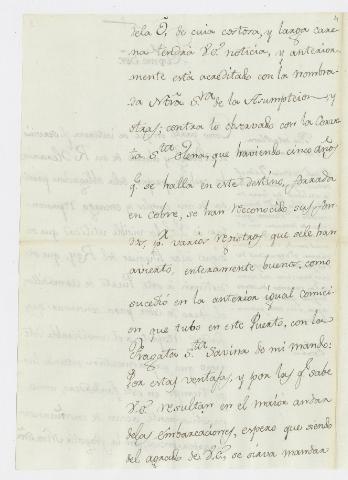 dela O. de cuia costosa, y larga care
na tendrá V.e. noticia, y anterior
mente está acreditado con la nombra
da Ntra. Sra. de la Assumpcion, y
otras; contra lo observado con la
ta Sta. Elena, que haviendo cinco años
q.e se halla en este destino, forrada
en cobre, se han reconocido sus fon
dos, p.r varios registros que sele han
avierto, enteramente buenos, como
sucedió en la anterior igual comici
on que tubo en este Puerto, con la
Fragata Sta. Savina de mi mando:
Por estas ventajas, y por las q.e sabe
V.e. resultan en el maior andar
delas embarcaciones, espero que siendo
del agrado de V.E., se sirva mandar